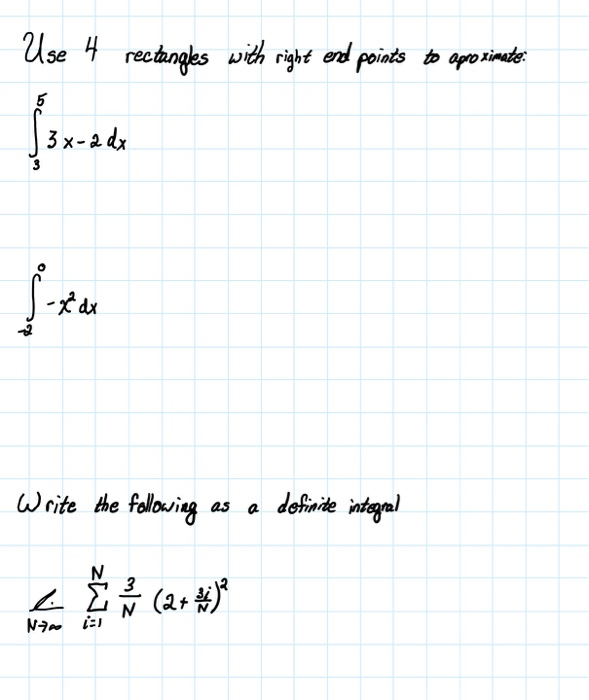 Use 4 rectangles with right end points to aproximate:
∫₃⁵ 3x-2 dx
∫₋₂⁰ -x² dx
Write the following as a definite integral
L N→∞ Σ i=1 N 3/N (2+ 3i/N)²